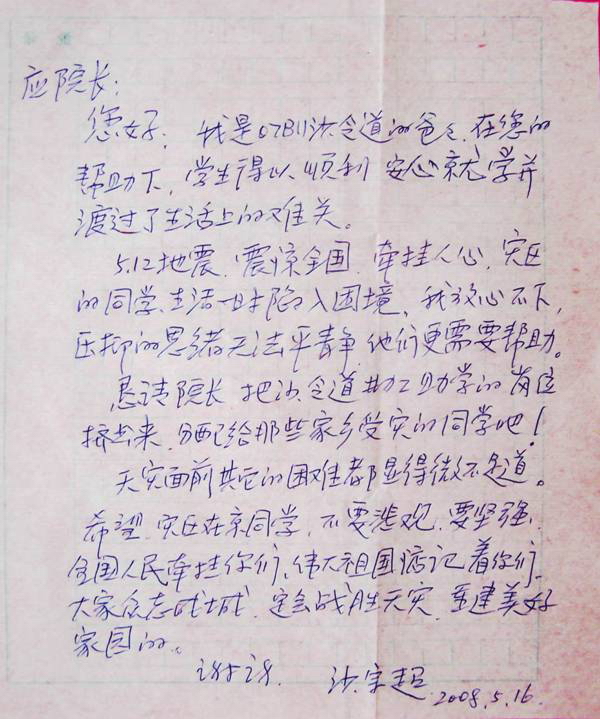 应院长:
您好! 我是07B11沙令道的爸爸,在您的
帮助下,学生得以顺利 安心就学并
渡过了生活上的难关。
5.12地震,震惊全国,牵挂人心,灾区
的同学,生活一时陷入困境,我放心不下,
压抑的思绪无法平静,他们更需要帮助。
恳请院长 把沙令道勤工助学的岗位
挤出来,分配给那些家乡受灾的同学吧!
天灾面前其它的困难都显得微不足道。
希望,灾区在京同学,不要悲观,要坚强,
全国人民牵挂你们,伟大祖国惦记着你们,
大家众志成城,定会战胜天灾,重建美好
家园的。
谢谢. 沙宗超 2008.5.16.